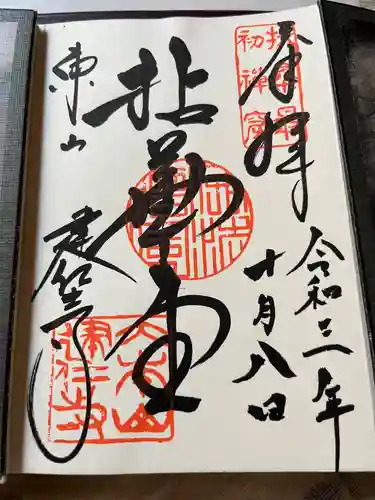 扶桑最
初禅窟
奉拝
令和三年
十月八日
拈華堂
東山
建仁寺
大本山
建仁寺